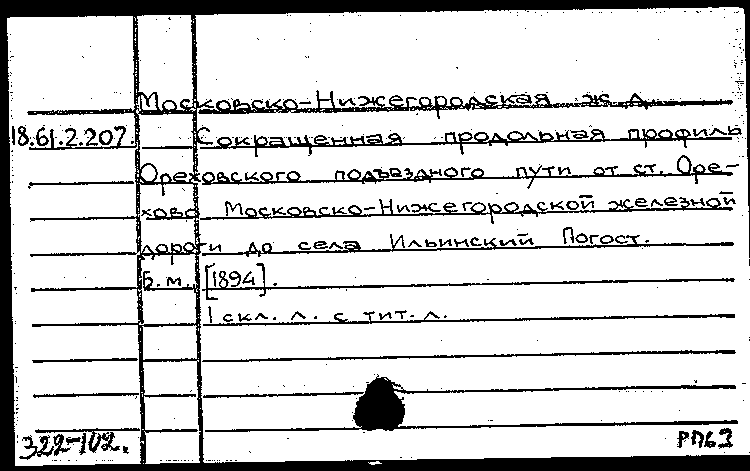 Московско-Нижегородская ж.д.
18.61.2.207. Сокращенная продольная профиль
Ореховского подъездного пути от ст. Оре-
хово Московско-Нижегородской железной
дороги до села Ильинский Погост.
Б.м., [1894].
1 скл. л. с тит. л.
322-102. РП63